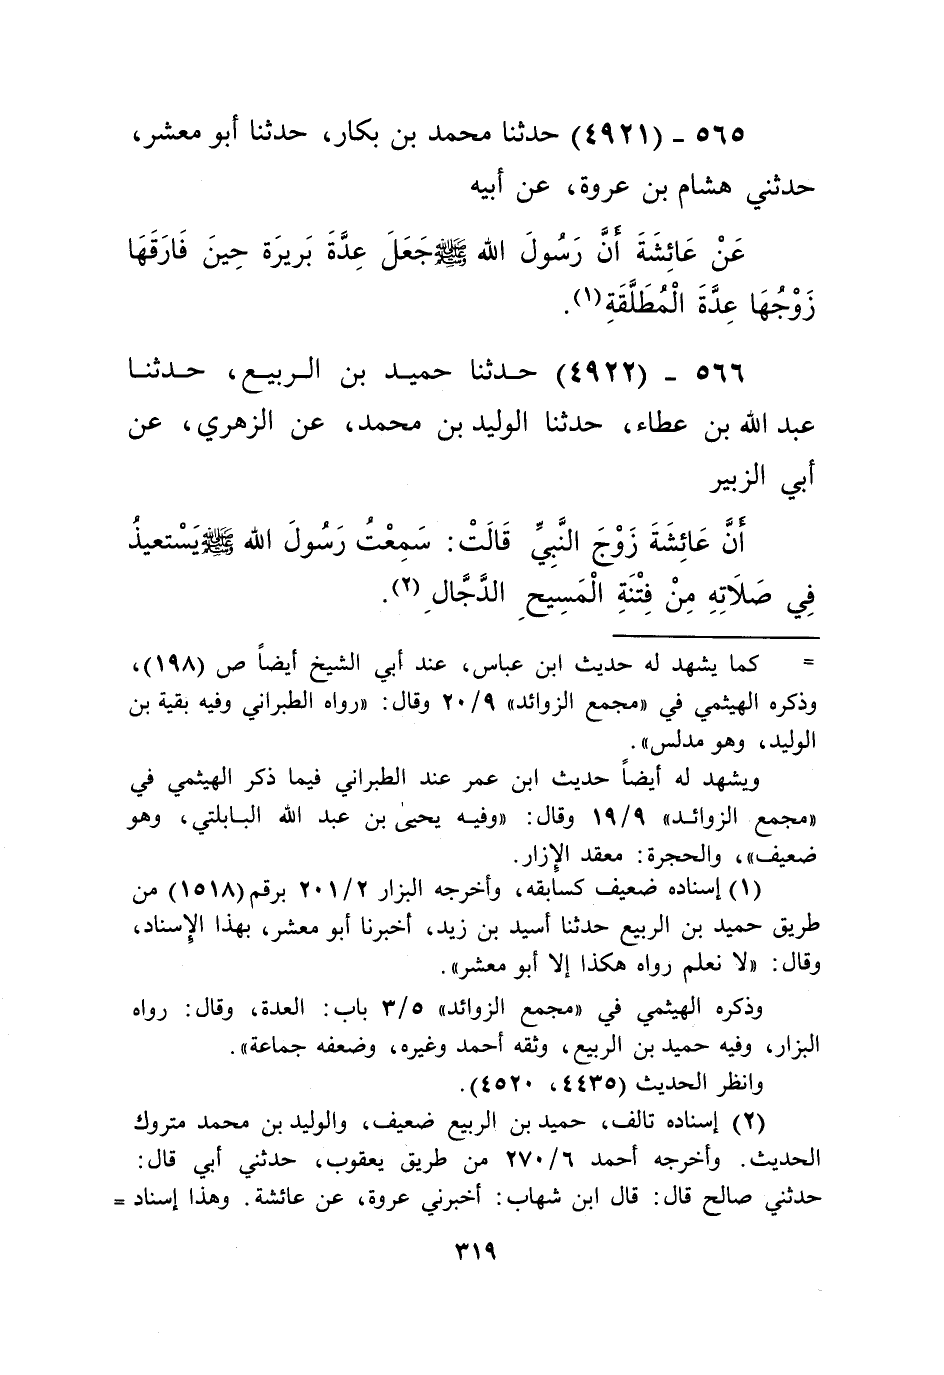 ٥٦٥ ـ (٤٩٢١) حدثنا محمد بن بكار، حدثنا أبو معشر،
حدثني هشام بن عروة، عن أبيه
عَنْ عَائِشَةَ أَنَّ رَسُولَ الله ﷺ جَعَلَ عِدَّةَ بَرِيرَة حِينَ فَارَقَهَا
زَوْجُهَا عِدَّةَ الْمُطَلَّقَةِ(١).
٥٦٦ ـ (٤٩٢٢) حدثنا حميد بن الربيع، حدثنا
عبد الله بن عطاء، حدثنا الوليد بن محمد، عن الزهري، عن
أبي الزبير
أَنَّ عَائِشَةَ زَوْجَ النَّبِيِّ قَالَتْ: سَمِعْتُ رَسُولَ الله ﷺ يَسْتعيذُ
فِي صَلَاتِهِ مِنْ فِتْنَةِ الْمَسِيحِ الدَّجَّالِ(٢).
= كما يشهد له حديث ابن عباس، عند أبي الشيخ أيضاً ص (١٩٨)،
وذكره الهيثمي في «مجمع الزوائد» ٢٠/٩ وقال: «رواه الطبراني وفيه بقية بن
الوليد، وهو مدلس».
ويشهد له أيضاً حديث ابن عمر عند الطبراني فيما ذكر الهيثمي في
«مجمع الزوائد» ١٩/٩ وقال: «وفيه يحيىٰ بن عبد الله البابلتي، وهو
ضعيف»، والحجرة: معقد الإِزار.
(١) إسناده ضعيف كسابقه، وأخرجه البزار ٢٠١/٢ برقم (١٥١٨) من
طريق حميد بن الربيع حدثنا أسيد بن زيد، أخبرنا أبو معشر، بهذا الإِسناد،
وقال: «لا نعلم رواه هكذا إلا أبو معشر».
وذكره الهيثمي في «مجمع الزوائد» ٣/٥ باب: العدة، وقال: رواه
البزار، وفيه حميد بن الربيع، وثقه أحمد وغيره، وضعفه جماعة».
وانظر الحديث (٤٤٣٥، ٤٥٢٠).
(٢) إسناده تالف، حميد بن الربيع ضعيف، والوليد بن محمد متروك
الحديث. وأخرجه أحمد ٢٧٠/٦ من طريق يعقوب، حدثني أبي قال:
حدثني صالح قال: قال ابن شهاب: أخبرني عروة، عن عائشة. وهذا إسناد =
٣١٩